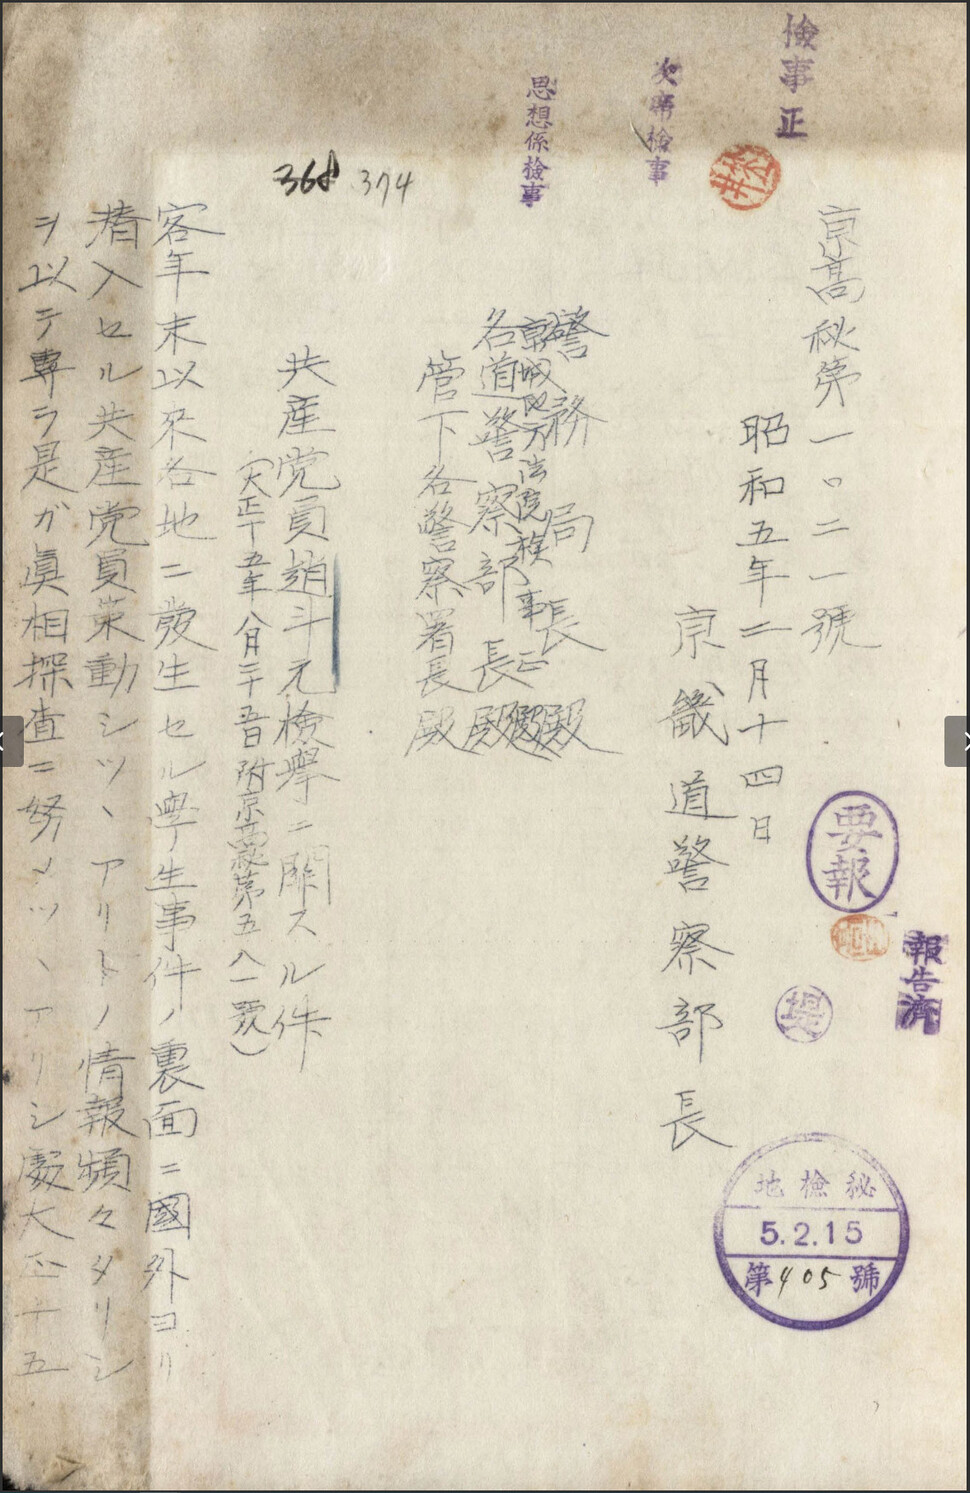 檢事正
次席檢事
思想係檢事
368 374
京高秘第一〇二一號
昭和五年二月十四日
京畿道警察部長
要報
報告濟
堤
地檢秘
5.2.15
第405號
警務局長殿
京城地方法院検事正殿
各道警察部長殿
管下各警察署長殿
共産党員趙斗元檢擧ニ関スル件
(大正十五年八月二十五日附京高秘第五八一號)
客年末以来各地ニ發生セル學生事件ノ裏面ニ國外ヨリ
潜入セル共産党員策動シツヽアリトノ情報頻々タリシ
ヲ以テ専ラ是ガ眞相探査ニ努メツヽアリシ處大正十五